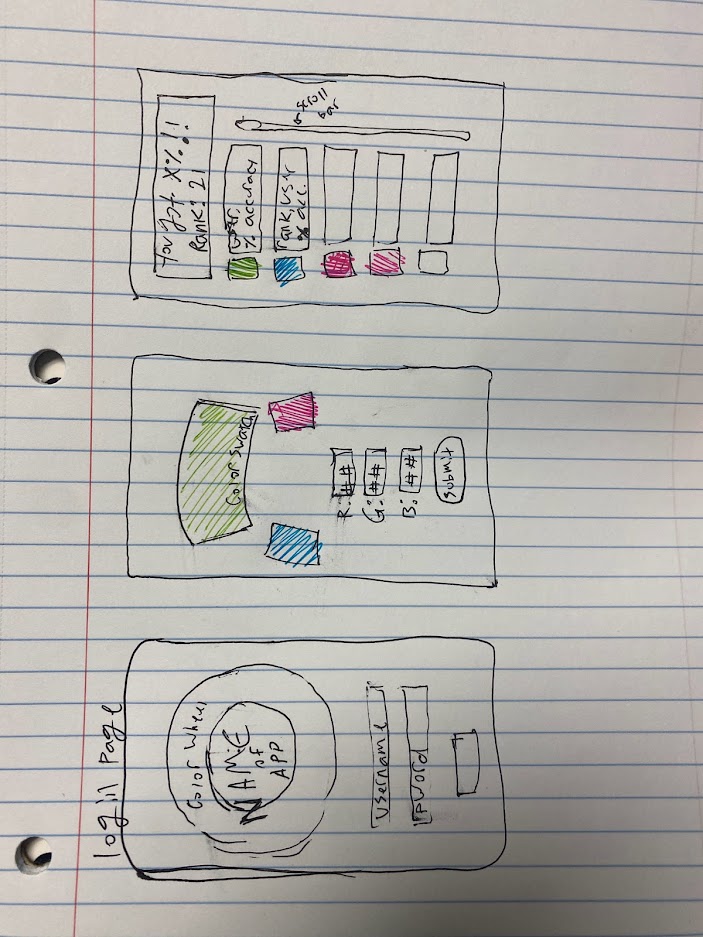 login Page
Color Wheel
NAME
of
APP
username
pword
Color Swatch
R: ##
G: ##
B: ##
submit
You got X%!!
Rank: 21
% accuracy
rank, user
% acc.
scroll
bar